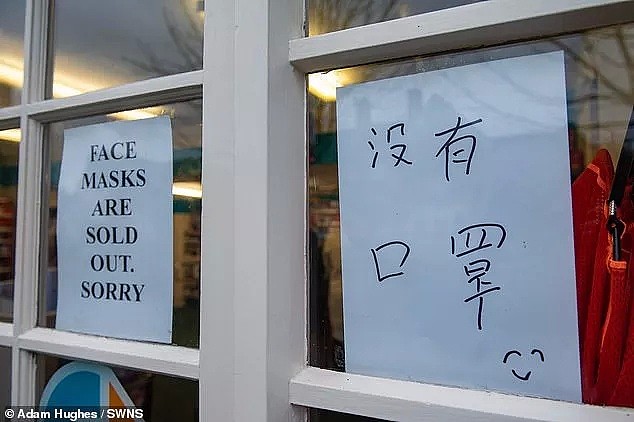 FACE
MASKS
ARE
SOLD
OUT.
SORRY
没有
口罩
© Adam Hughes / SWNS